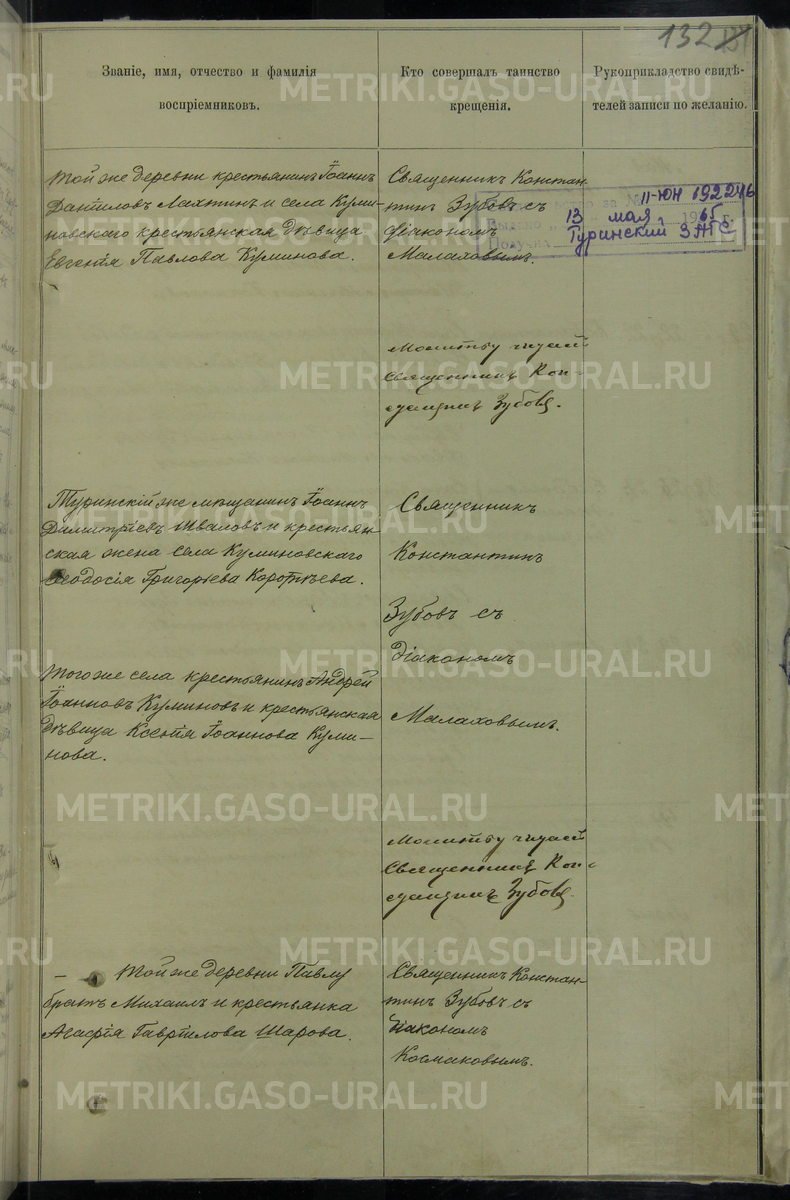 132
Званіе, имя, отчество и фамилія
воспріемниковъ.
Кто совершалъ таинство
крещенія.
Рукоприкладство свидѣ-
телей записи по желанію.
Той же деревни крестьянинъ Іоаннъ
Даніиловъ Махтинъ и села Куми-
новскаго крестьянская дѣвица
Евгенія Павлова Куминова.
Священникъ Констан-
тинъ Зубовъ съ
діакономъ
Малаховымъ.
за № II-ЮН 192246
13 мая 1965 г.
Туринский ЗАГС
Молитву читалъ
Священникъ Кон-
стантинъ Зубовъ.
Туринскій же мѣщанинъ Іоаннъ
Димитріевъ Шваловъ и крестьян-
ская жена села Куминовскаго
Ѳеодосія Григорьева Коротѣева.
Священникъ
Константинъ
Зубовъ съ
діакономъ
Малаховымъ.
Того же села крестьянинъ Андрей
Іоанновъ Куминовъ и крестьянская
дѣвица Ксенія Іоаннова Куми-
нова.
Молитву читалъ
Священникъ Кон-
стантинъ Зубовъ.
Той же деревни Павлу
братъ Михаилъ и крестьянка
Агафія Гавріилова Шарова.
Священникъ Констан-
тинъ Зубовъ съ
діакономъ
Космаковымъ.
METRIKI.GASO-URAL.RU